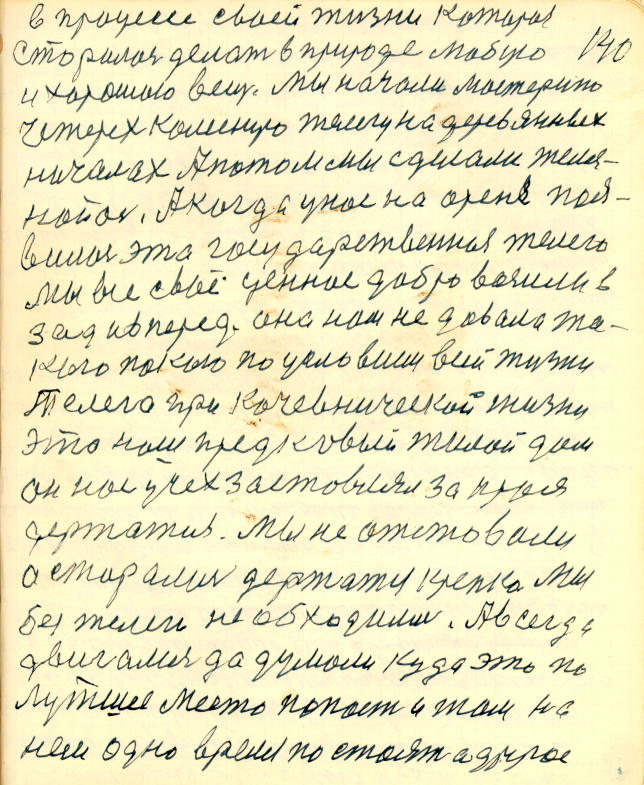 в процессе своей жизни Которая
старался делат в природе любую 140
и хорошою вещ. Мы начали мастерит
четерех колесную телегу на деревянных
началах А потом мы сделали желез-
ной. А когда у нас на арене поя-
вился эта государственная телега
Мы все своё ценное добро возили в
зад и вперед. она нам не давала та-
кого покою по условиям всей жизни
Телега при Кочевнической жизни
Это наш предковый жилой дом
он нас учех заставлял за края
держатия. Мы не отставали
а старалис держатя крепка Мы
без телеги не обходилис. А всегда
двигался да думали куда это по
лутшее место попаст и там на
нем одно время постоят а другое